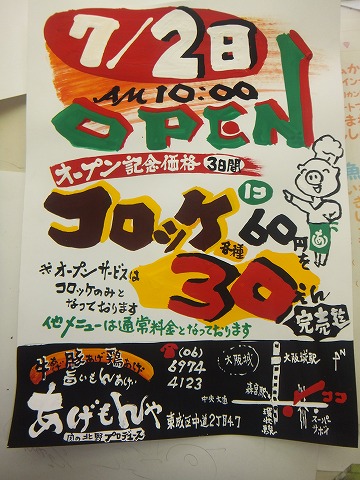 7/2日
AM10:00
OPEN
オープン記念価格 3日間
コロッケ 各種 1コ 60円を
30えん
完売迄
※オープンサービスは
コロッケのみと
なっております
他メニューは通常料金となっております
牛あげ・豚あげ・鶏あげ・
旨いもんあげ・
あげもんや
肉の北野プロデュース
☎(06)
6974
4123
東成区中道2丁目4-7
大阪城
大阪城駅
森宮駅
中央大通
環状線
ココ
スーパー
サボイ